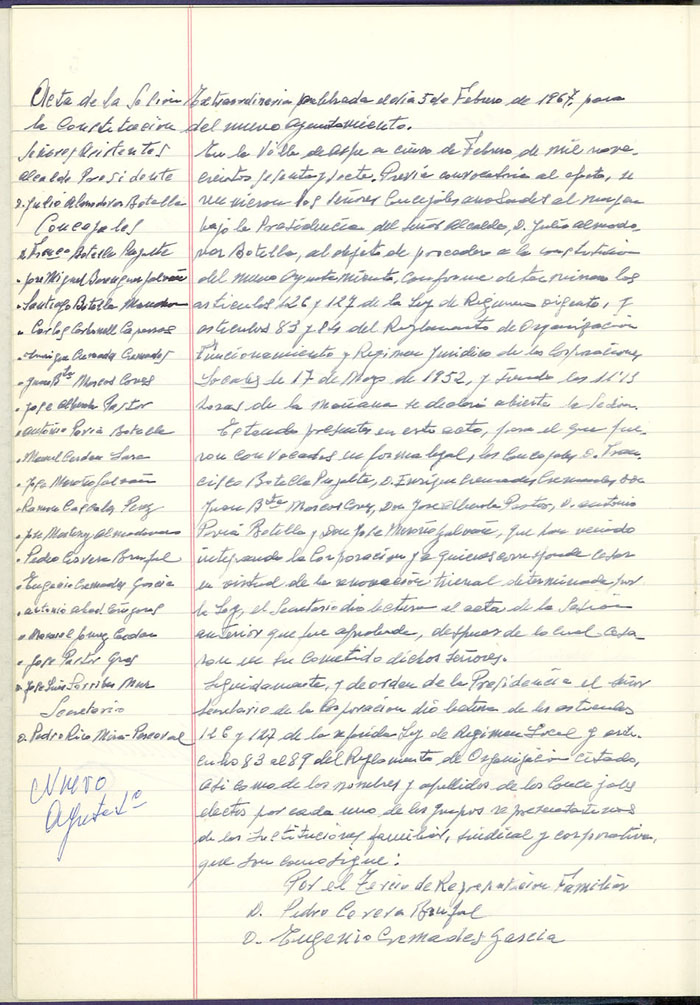 Acta de la Sesion Extraordinaria celebrada el dia 5 de Febrero de 1967, para
la Constitucion del nuevo Ayuntamiento.
Señores Asistentes
Alcalde Presidente
D. Julio Almodovar Botella
Concejales
D. Franco Botella
" Jose Miguel Galvañ
" Santiago Botella
" Carlos Carbonell
" Enrique Cremades Cremades
" Juan Bta Marcos Cones
" Jose Alberola Pastor
" Antonio Pavia Botella
" Manuel Cerdan
" Jose Moroño Galvañ
" Ramon Perez
" Jose Almodovar
" Pedro Cerera Bonful
" Eugenio Cremades Garcia
" Antonio
" Manuel Cerdan
" Jose Pastor
D. Jose Luis Mur
Secretario
D. Pedro Rico Mira-Perceval
Nuevo
Aynto
En la Villa de Aspe a cinco de Febrero de mil nove-
cientos sesenta y siete. Previa convocatoria al efecto, se
reunieron los Señores Concejales al margen
bajo la Presidencia del Señor Alcalde, D. Julio Almodo-
var Botella, al objeto de proceder a la constitucion
del nuevo Ayuntamiento, conforme determinan los
articulos 126 y 127 de la Ley de Regimen vigente, y
articulos 83 y 84 del Reglamento de Organización
Funcionamiento y Regimen Juridico de las Corporaciones
Locales de 17 de Mayo de 1952, y siendo las 11'15
horas de la mañana se declara abierta la Sesion.
Estando presentes en este acto, para el que fue-
ron convocados en forma legal, los Concejales D. Fran-
cisco Botella, D. Enrique Cremades Cremades, Don
Juan Bta Marcos Cones, Don Jose Alberola Pastor, D. Antonio
Pavia Botella y Don Jose Moroño Galvañ, que han venido
integrando la Corporacion y a quienes corresponde cesar
en virtud de la renovacion trienal determinada por
la Ley, el Secretario dio lectura al acta de la Sesion
anterior que fue aprobada, despues de lo cual cesa-
ron en su cometido dichos señores.
Seguidamente, y de orden de la Presidencia el señor
Secretario de la Corporacion dio lectura de los articulos
126 y 127 de la referida Ley de Regimen Local y articu-
los 83 al 89 del Reglamento de Organizacion citado,
asi como de los nombres y apellidos de los Concejales
electos por cada uno de los grupos representativos
de las Instituciones familiar, sindical y corporativa,
que son como sigue:
Por el Tercio de Representacion Familiar
D. Pedro Cerera Bonful
D. Eugenio Cremades Garcia